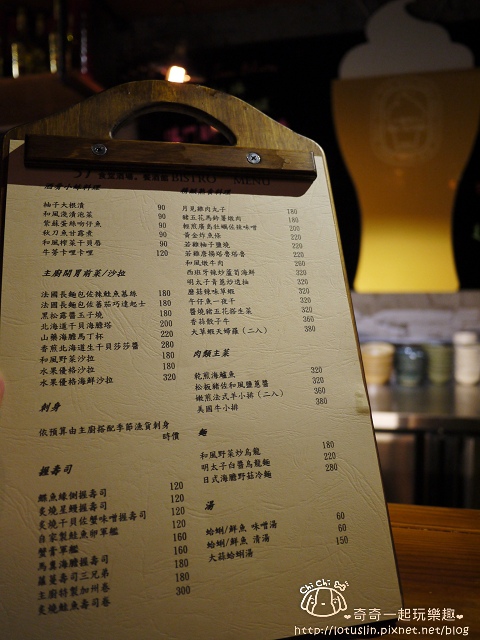 BISTRO MENU
柚子大根漬 90
和風淺漬泡菜 90
紫蘇蛋絲吻仔魚 90
秋刀魚甘露煮 90
和風榨菜干貝唇 90
牛蒡卡哩卡哩 120
主廚開胃前菜/沙拉
法國長麵包佐鮭魚慕絲 180
法國長麵包佐蕃茄巧達起士 180
黑松露醬玉子燒 180
北海道干貝海膽塔 200
山藥海膽馬丁杯 220
香煎北海道生干貝莎莎醬 280
和風野菜沙拉 180
水果優格沙拉 180
水果優格海鮮沙拉 320
刺身
依預算由主廚搭配季節漁貨刺身
時價
握壽司
鰈魚緣側握壽司 120
炙燒星鰻握壽司 120
炙燒干貝佐蟹味噌握壽司 120
自家製鮭魚卵軍艦 160
蟹膏軍艦 160
馬糞海膽握壽司 180
蘿蔓壽司三兄弟 180
主廚特製加州卷 180
炙燒鮭魚壽司卷 300
月見雞肉丸子 180
豬五花馬鈴薯燉肉 180
輕煎廣島牡蠣佐辣味噌 200
黃金炸魚條 220
若雞柚子鹽燒 220
若雞唐揚塔魯塔魯 220
和風燉牛肉 260
西班牙辣炒蘆筍海鮮 320
明太子青蔥炒透抽 320
蘑菇辣味草蝦 320
午仔魚一夜干 320
醬燒豬五花搭生菜 320
香蒜骰子牛 360
大草蝦天婦羅（二人） 380
肉類主菜
乾煎海鱸魚 320
松板豬佐和風鹽蔥醬 320
嫩煎法式羊小排（二人） 360
美國牛小排 380
麵
和風野菜炒烏龍 180
明太子白醬烏龍麵 220
日式海膽野菇冷麵 280
湯
蛤蜊/鮮魚 味噌湯 60
蛤蜊/鮮魚 清湯 60
大蒜蛤蜊湯 150
Chi Chi
奇奇一起玩樂趣
http://lotuslin.pixnet.net/blog